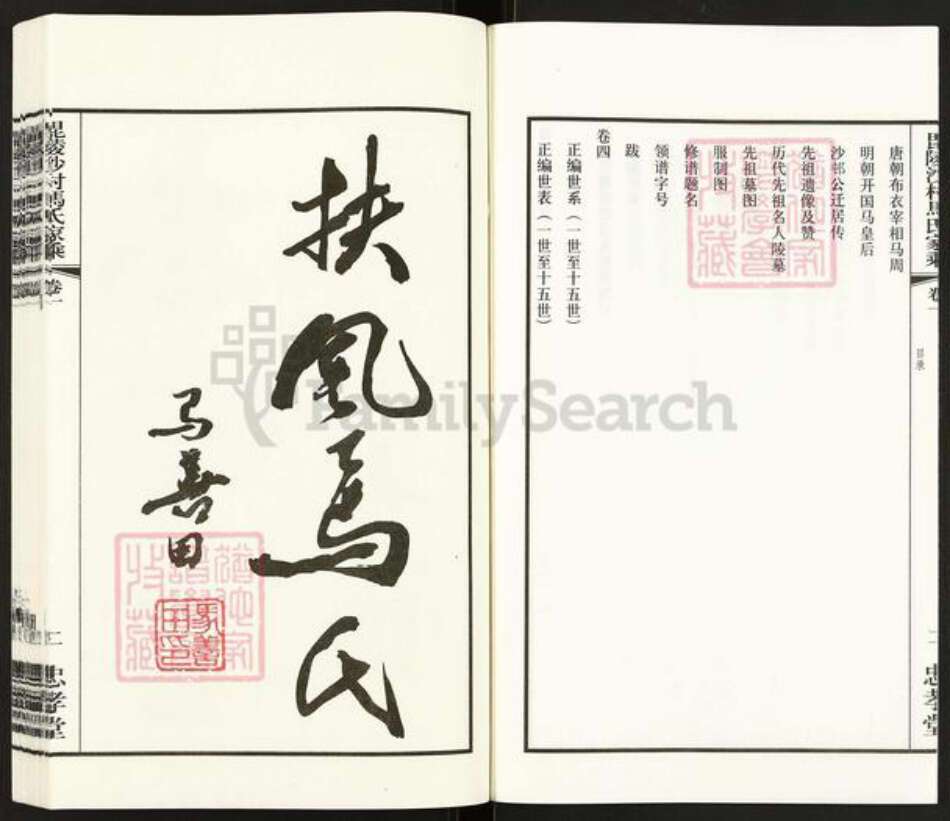 毘陵沙村馬氏家乘
卷一
目录
唐朝布衣宰相马周
明朝开国马皇后
沙邨公迁居传
先祖遗像及赞
历代先祖名人陵墓
先祖墓图
服制图
修谱题名
领谱字号
跋
卷四
正编世系（一世至十五世）
正编世表（一世至十五世）
二
忠孝堂
扶風馬氏
马善田
馬善田印
毘陵沙村馬氏家乘
卷一
二
忠孝堂
FamilySearch